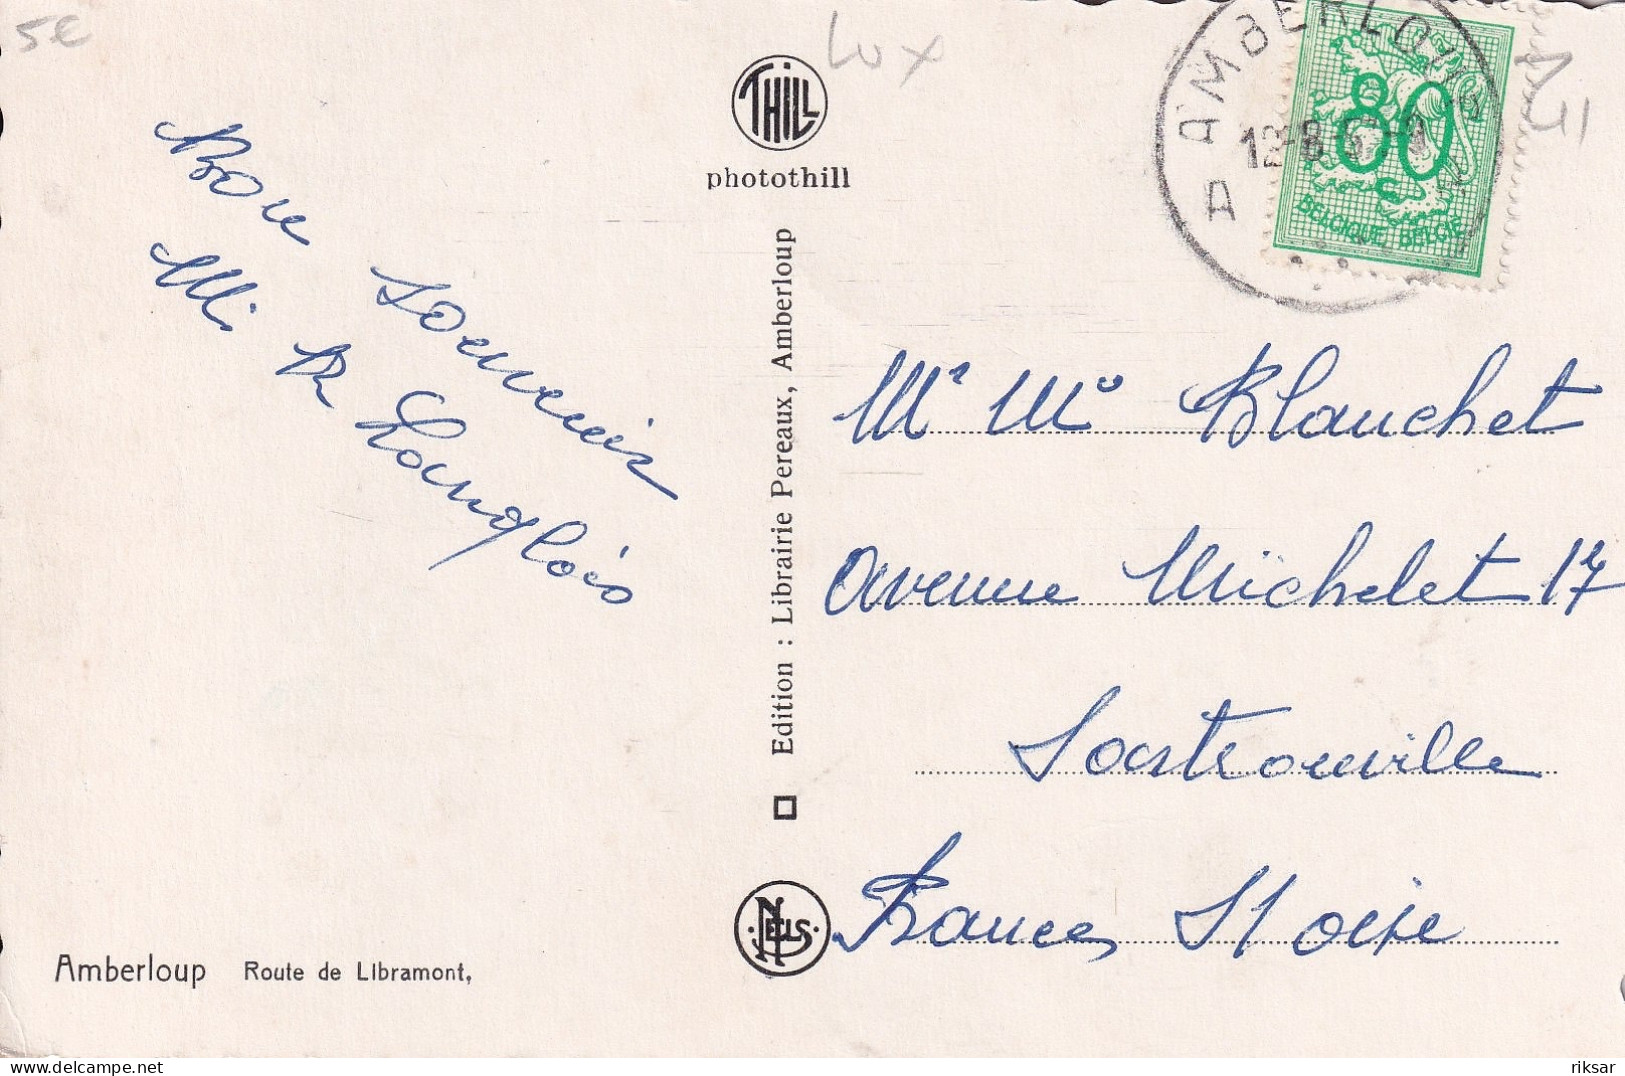 5€
Lux
THILL
photothill
AMBERLOUP
12-8-
A
80
BELGIQUE BELGIE
Bon souvenir
Mi R Langlois
Edition : Librairie Pereaux, Amberloup
Mr Me Blanchet
avenue Michelet 17
Sartrouville
France S et oise
NELS
Amberloup Route de Libramont,
riksar